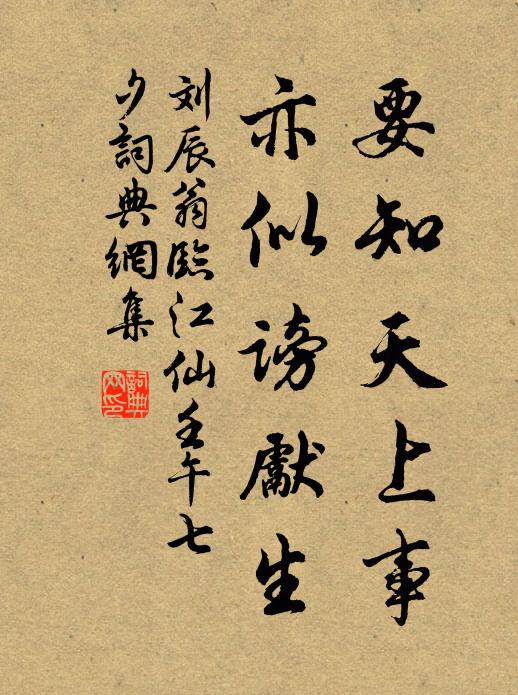 要知天上事
亦似謗獻生
刘辰翁臨江仙壬午七
夕詞典網集
詞典網印